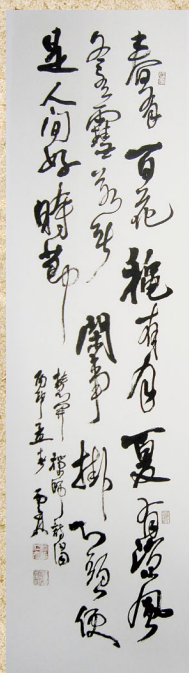 春有百花穐有月夏有涼風
冬有雪若無閑事掛心頭便
是人間好時節